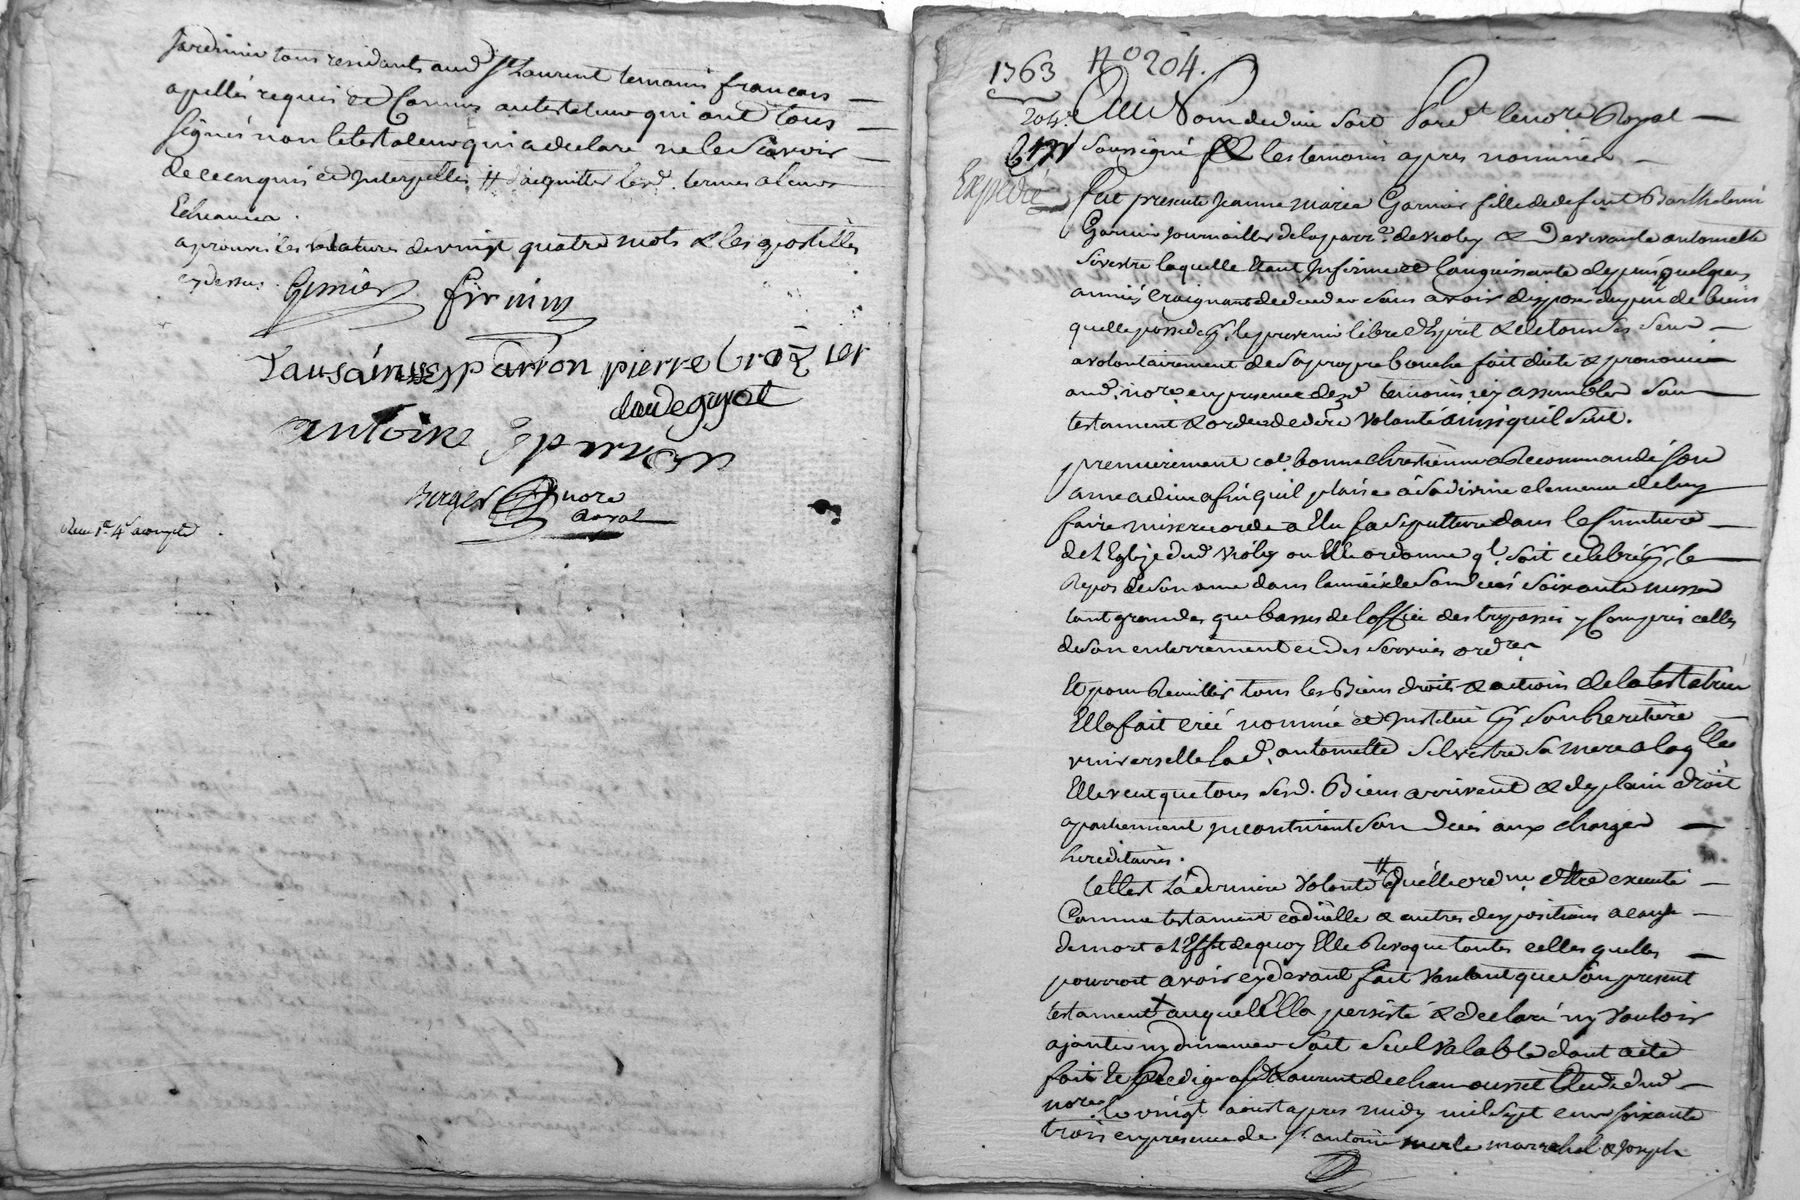 Jardinier tous residants aud. St Laurent temoins francois
apellés requis et Connus autestateur qui ont tous
signés non le testateur qui a declaré ne le scavoir
de ce enquis et Interpellé # d'acquitter lesd. termes a leurs
Echeances.
aprouvé les ratatures de vingt quatre mots & les apostilles
cy dessus.
Grenier firmin
Tausaint esparron pierre Crozier
claude guyot
antoine Esparron
Berger nore
Royal
1763 No 204.
204e
Expedié
Au Nom de dieu soit Pard.t le nore Royal
soussigné & les temoins apres nommés
fut presente Jeanne marie Garnier fille de defunt Barthelemi
Garnier Journallier de la parr.e de violey & De vivante antoinette
Sivestre laquelle Etant Infirme et Languissante depuis quelques
années craignant de deceder sans avoir disposé du peu de biens
quelle possede pr. le prevenir libre d'Esprit & de tous ses sens
a volontairement de sa propre bouche fait dicté & prononcé
aud. nore. en presence desd. temoins icy assemblés son
testament & ordre de dere volonté ainsi qu'il suit.
premierement co.e bonne chrestienne a Recommandé son
ame a dieu afin quil plaise à sa divine clemence de luy
faire misericorde a Elu sa sepulture dans le simitiere
de l'Eglize dud. violey ou Elle ordonne ql. soit celebré pr. le
Repos de son ame dans l'année de son decés soixante messes
tant grandes que basses de l'office des trepassés y Compris celles
de son enterrement et des services ordres
Et pour Receuillir tous les Biens droits & actions de la testatrice
Ella fait créé nommé et Institué pr. son heritiere
universelle lad. antoinette silvestre sa mere a laqlle
Elle veut que tous sesd. Biens arrivent & de plain droit
apartiennent Incontinent son decés aux charges
hereditaires.
telle est La derniere volonté # quelle ordne. etre executé
Comme testament codicille & autres dispositions a cause
de mort a l'Effet de quoy Elle Revoque toutes celles quelle
pourroit avoir cy devant fait voulant que son present
testament auquel Ella persisté & declaré ny vouloir
ajouter ny diminuer soit seul valable dont acte
fait et Redigé a St Laurent de chamousset Etude dud.
nore le vingt aoust apres midy mil sept cens soixante
trois en presence de sr. antoine merle marechal & Joseph